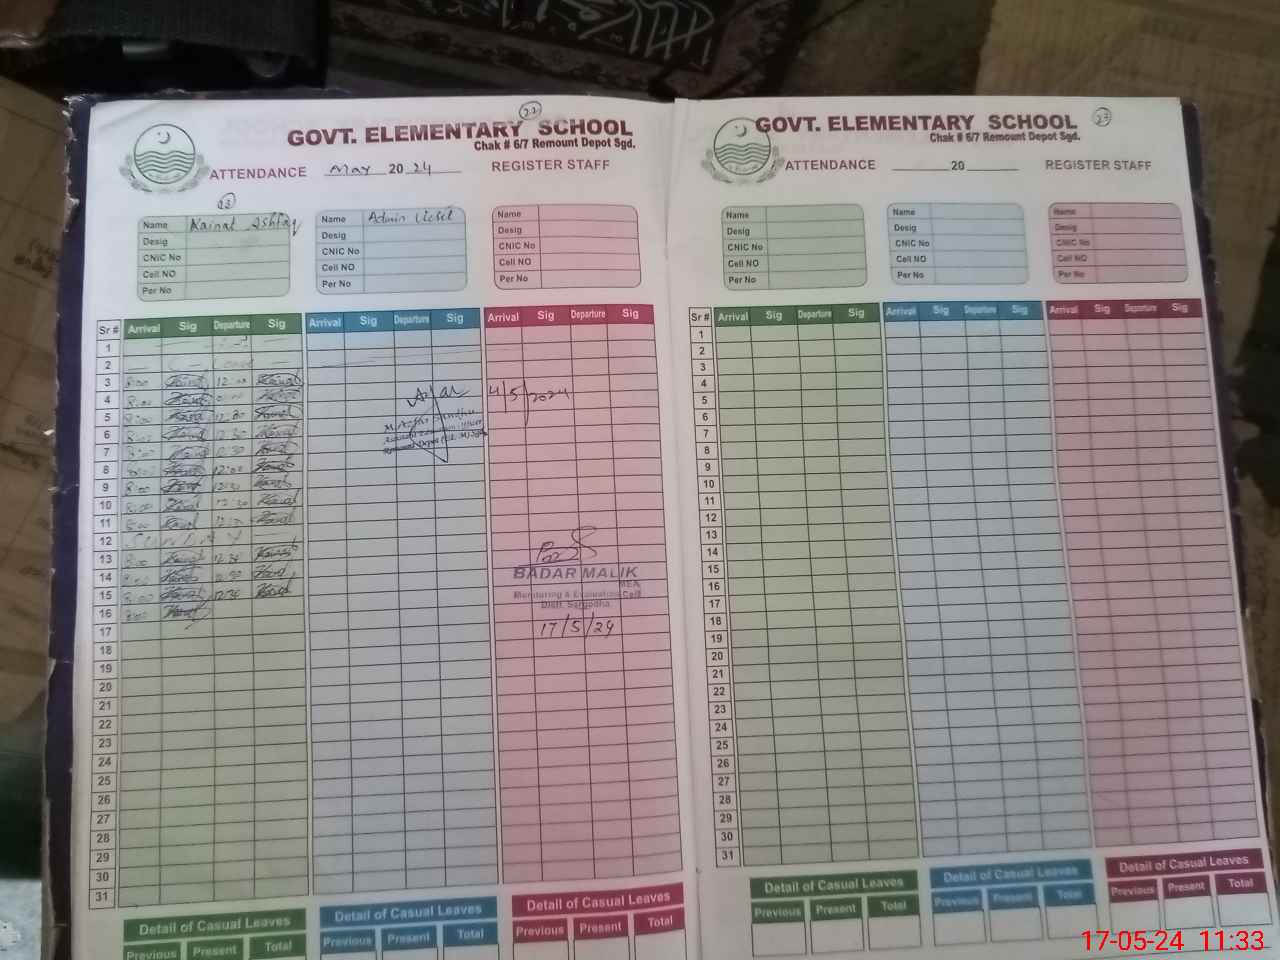 22
GOVT. ELEMENTARY SCHOOL
Chak # 6/7 Remount Depot Sgd.
ATTENDANCE May 2024 REGISTER STAFF
Name Kainat Ashfaq
Desig
CNIC No
Cell NO
Per No
Name Admin Visit
Desig
CNIC No
Cell NO
Per No
Name
Desig
CNIC No
Cell NO
Per No
Sr # Arrival Sig Departure Sig Arrival Sig Departure Sig Arrival Sig Departure Sig
1
2 Leave
3 8:00 Kainat 12:00 Kainat
4 8:00 Kainat Kainat 4/5/2024
5 8:00 Kainat 12:30 Kainat
6 8:00 Kainat 12:30 Kainat
7 8:00 Kainat 12:30 Kainat
8 8:00 Kainat 12:00 Kainat
9 8:00 Kainat 12:30 Kainat
10 8:00 Kainat 12:30 Kainat
11 8:00 Kainat 12:30 Kainat
12 Sunday
13 8:00 Kainat 12:30 Kainat
14 8:00 Kainat 12:30 Kainat
BADAR MALIK
MEA
15 8:00 Kainat 12:30 Kainat
Monitoring & Evaluation Cell
Distt. Sargodha.
16 8:00 Kainat
17 17/5/24
18
19
20
21
22
23
24
25
26
27
28
29
30
31
Detail of Casual Leaves Detail of Casual Leaves Detail of Casual Leaves
Previous Present Total Previous Present Total Previous Present Total
23
GOVT. ELEMENTARY SCHOOL
Chak # 6/7 Remount Depot Sgd.
ATTENDANCE 20 REGISTER STAFF
Name
Desig
CNIC No
Cell NO
Per No
Name
Desig
CNIC No
Cell NO
Per No
Name
Desig
CNIC No
Cell NO
Per No
Sr # Arrival Sig Departure Sig Arrival Sig Departure Sig Arrival Sig Departure Sig
1
2
3
4
5
6
7
8
9
10
11
12
13
14
15
16
17
18
19
20
21
22
23
24
25
26
27
28
29
30
31
Detail of Casual Leaves Detail of Casual Leaves Detail of Casual Leaves
Previous Present Total Previous Present Total Previous Present Total
17-05-24 11:33